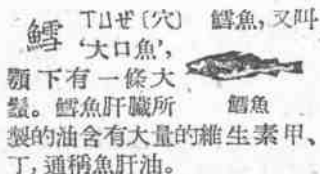 鱈 ㄒㄩㄝˇ〔穴〕 鱈魚,又叫
‘大口魚’,
顎下有一條大
鬚。鱈魚肝臟所
鱈魚
製的油含有大量的維生素甲、
丁,通稱魚肝油。